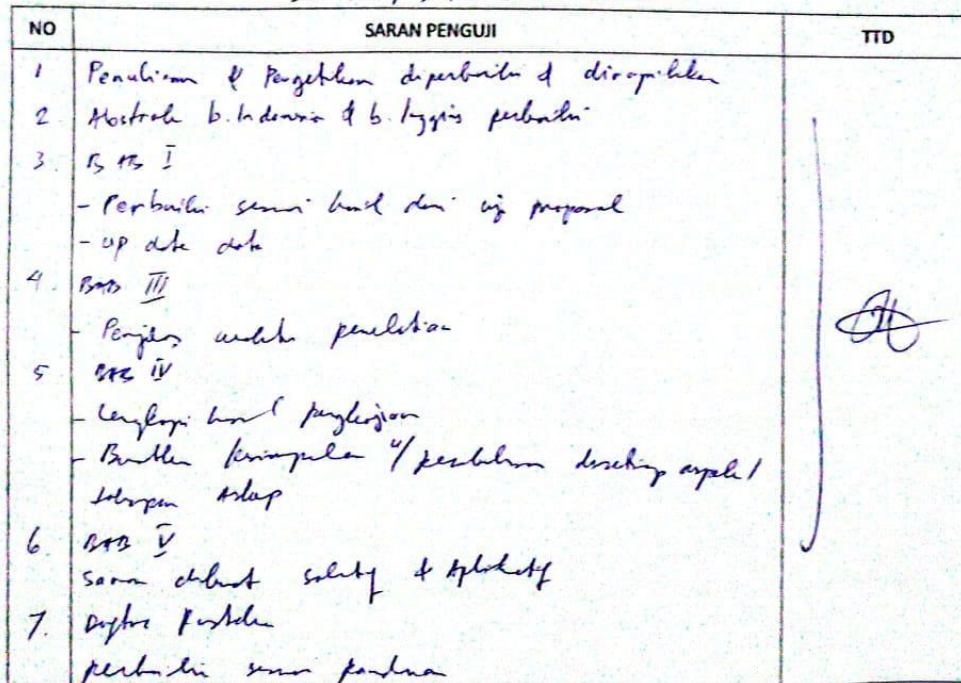 NO SARAN PENGUJI TTD
1 Penulisan & Pengetikan diperbaiki & dirapihkan
2. Abstrak b. Indonesia & b. Inggris perbaiki
3. BAB I
- Perbaiki sesuai hasil dari uji proposal
- up date data
4 BAB III
- Penjelas penelitian
5 BAB IV
- Lengkapi hasil pengkajian
- Buatkan kesimpulan u/ pembahasan disetiap aspek/
tahapan Askep
6 BAB V
Saran dibuat & Aplikatif
7. Daftar Pustaka
perbaiki sesuai panduan